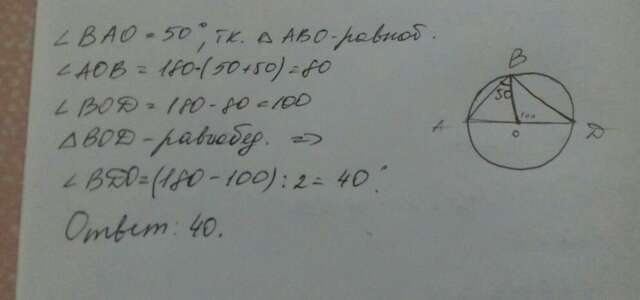 ∠BAO = 50°, т.к. △ABO - равноб.
∠AOB = 180-(50+50)=80
∠BOD = 180-80=100
△BOD - равнобед. =>
∠BDO=(180-100):2=40°
Ответ: 40.
B
50
A
100
O
D